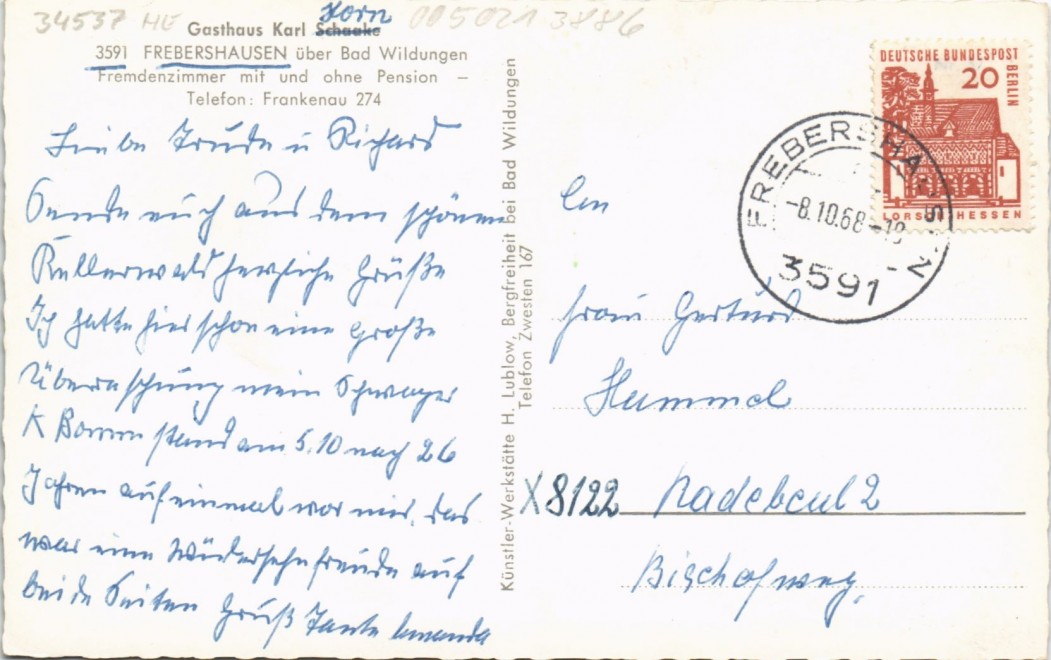 34537 HE
0050213886
Gasthaus Karl Schaake Horn
3591 FREBERSHAUSEN über Bad Wildungen
Fremdenzimmer mit und ohne Pension –
Telefon: Frankenau 274
Liebe Trude u Richard
Sende euch aus dem schönen
Kellerwald herzliche Grüße
Ich hatte hier schon eine große
Überraschung mein Schwager
K stand am 5.10 nach 26
Jahren auf einmal vor mir, das
war eine Wiedersehnfreude auf
beide Seiten Gruß Tante Amanda
Künstler-Werkstätte H. Lublow, Bergfreiheit bei Bad Wildungen
Telefon Zwesten 167
DEUTSCHE BUNDESPOST
BERLIN
20
LORSCH HESSEN
FREBERSHAUSEN
-8.10.68-18
3591
An
Frau Gertrud
Hummel
X8122 Radebeul 2
Bischofweg,